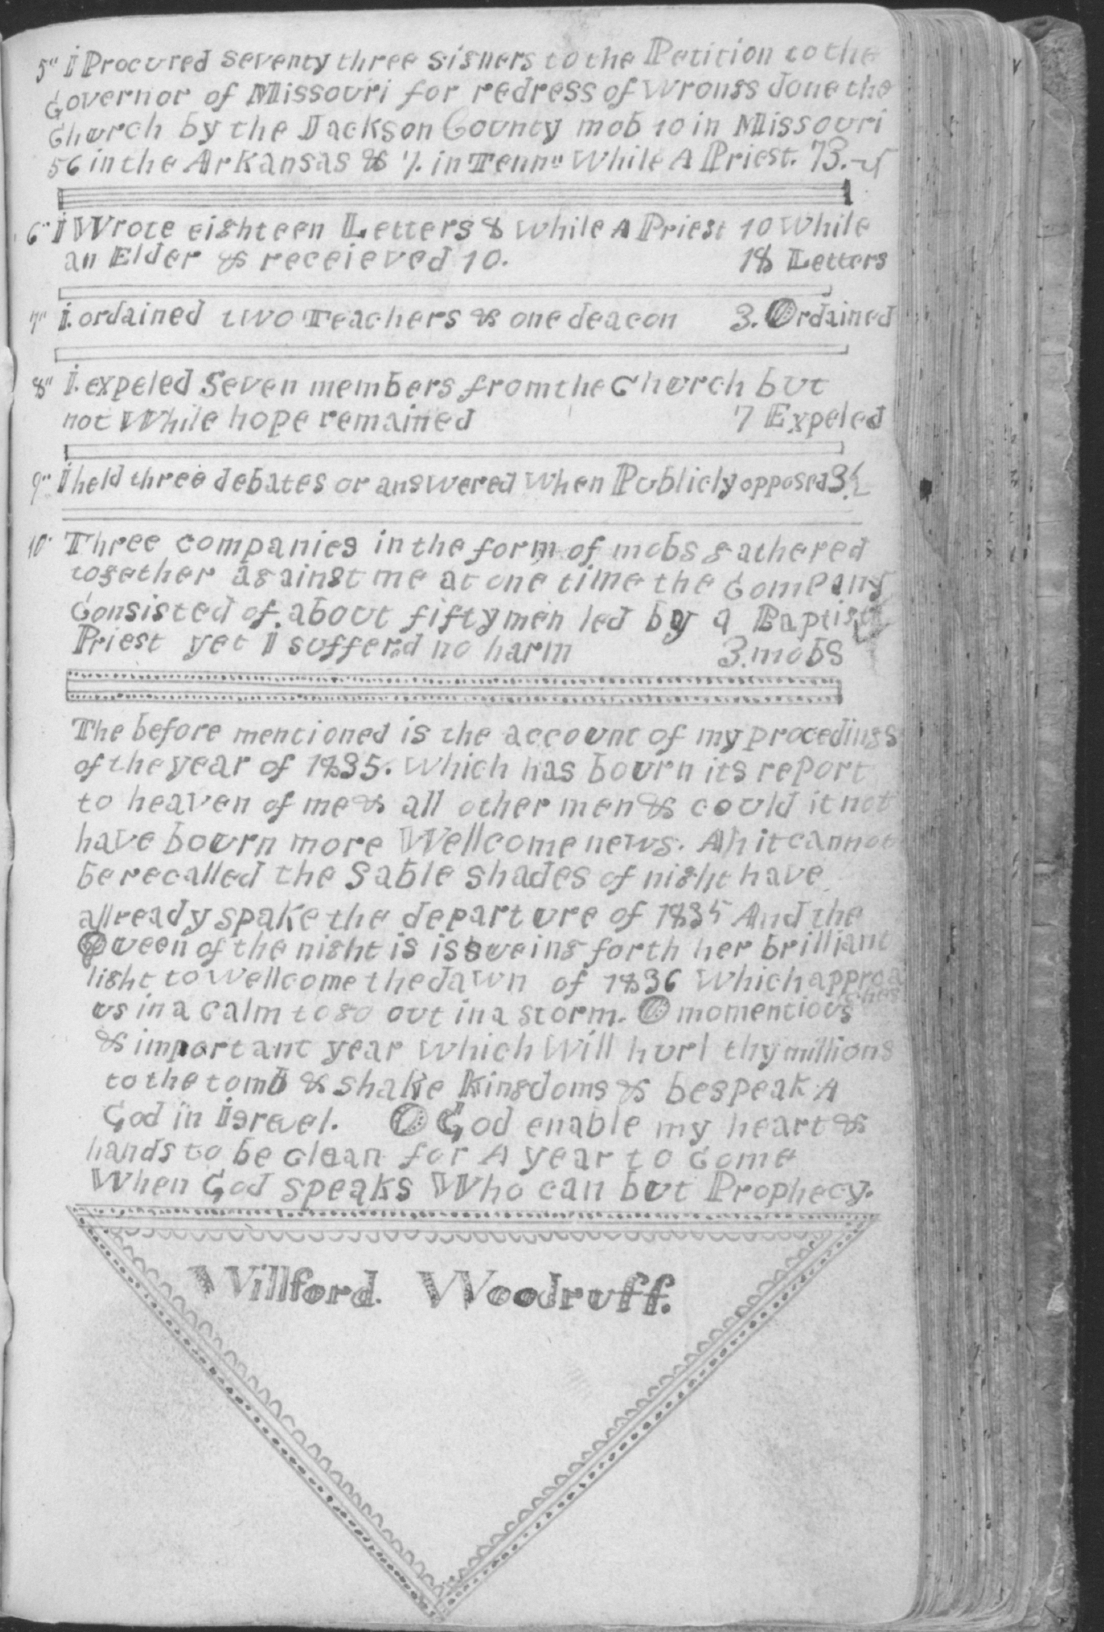 5" I Procured seventy three signers to the Petition to the
Governor of Missouri for redress of wrongs done the
Church by the Jackson County mob 10 in Missouri
56 in the Arkansas & 7. in Tenn" While A Priest. 73.
6" I Wrote eighteen Letters 8 while A Priest 10 While
an Elder & receieved 10. 18 Letters
7" I. ordained two Teachers & one deacon 3. Ordained
8" I. expeled Seven members from the Church but
not While hope remained 7 Expeled
9" I held three debates or answered when Publicly opposed 3.
10" Three companies in the form of mobs gathered
together against me at one time the Company
Consisted of about fifty men led by a Baptist
Priest yet I sufferd no harm 3. mobs
The before mentioned is the account of my procedings
of the year of 1835. Which has bourn its report
to heaven of me & all other men & could it not
have bourn more Wellcome news. Ah it cannot
be recalled the Sable shades of night have
allready spake the departure of 1835 And the
Queen of the night is issueing forth her brilliant
light to wellcome the dawn of 1836 which approaches
us in a calm to go out in a storm. O momentious
& important year which Will hurl thy millions
to the tomb & shake Kingdoms & bespeak A
God in Israel. O God enable my heart &
hands to be clean for A year to come
When God speaks Who can but Prophecy.
Willford. Woodruff.